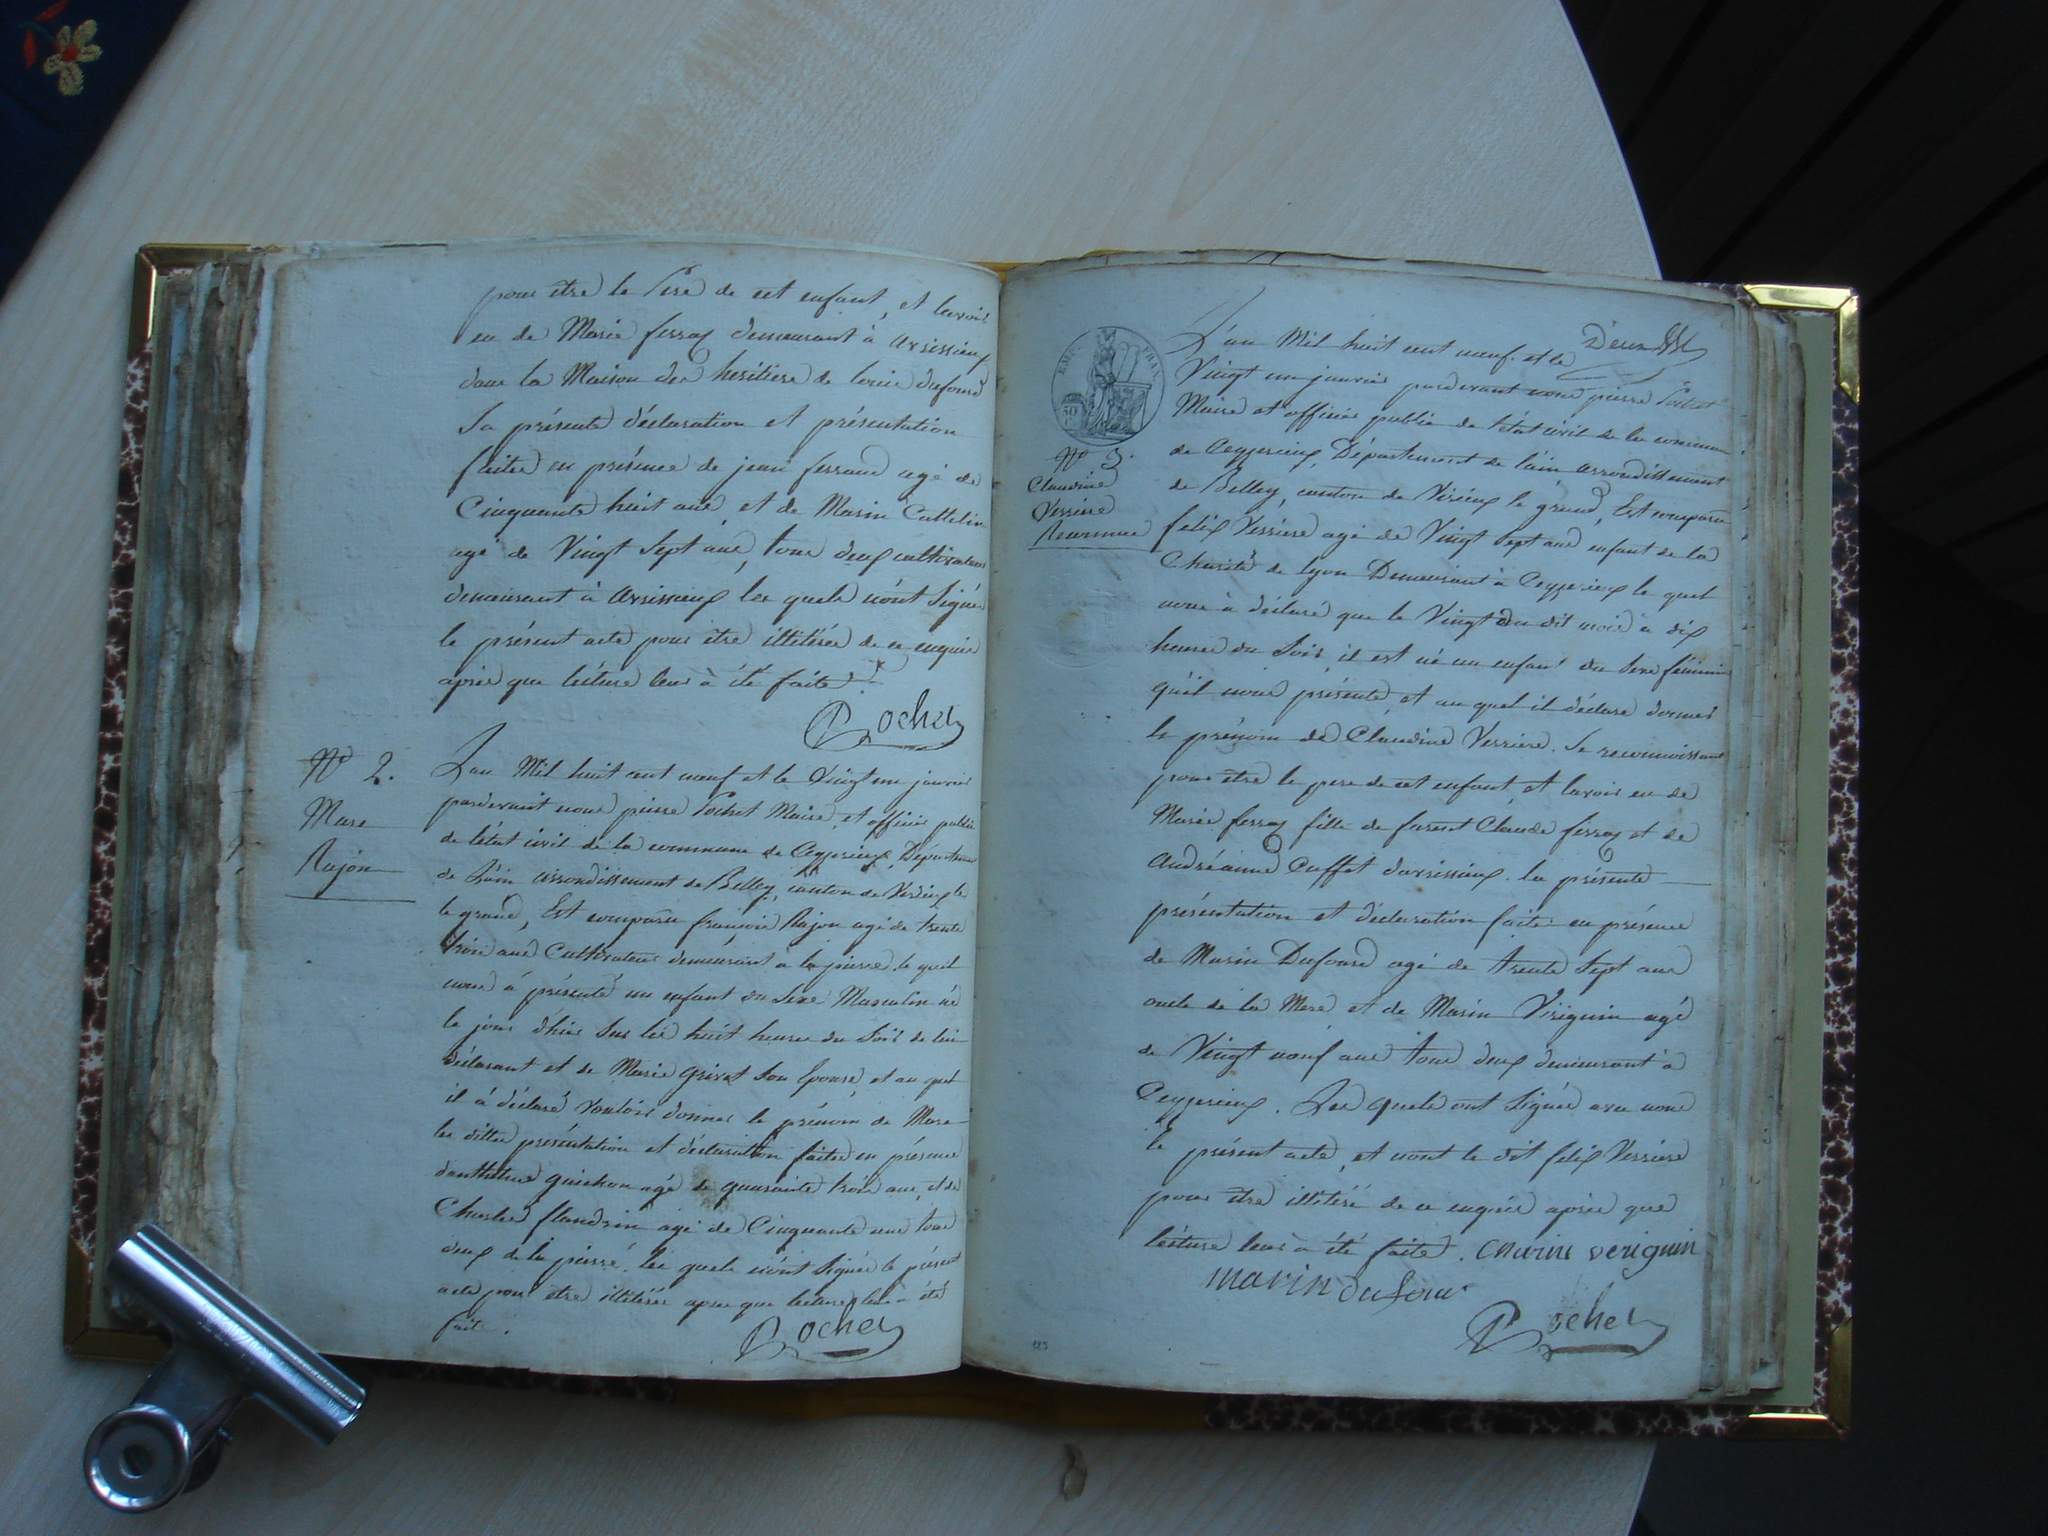 pour être le Père de cet enfant, et lavoir
eu de Marie ferraz demeurant à arvissieux
dans la Maison des héritiers de louis dufour
Sa présente déclaration et présentation
faites en présence de jean ferrand agé de
Cinquante huit ans, et de Marin Cuttelin
agé de Vingt Sept ans, tous deux cultivateurs
demeurant à arvissieux les quels n'ont Signés
le présent acte pour être illitérés de ce enquis
après que léiture leur à été faite.
Pochet
N° 2.
Marc
Rajon
L'an Mil huit cent neuf et le Vingt un janvier
pardevant nous pierre Pochet Maire, et officier public
de l'état civil de la commune de Ceyzerieux, Département
de L'ain arrondissement de Belley, canton de Virieux le
le grand, Est comparu françois Rajon agé de trente
trois ans Cultivateur demeurant à la pierre le quel
nous à présenté un enfant du Sexe Masculin né
le jour d'hier Sur les huit heures du Soir de lui
déclarant et de Marie grivet Son Epouse, et au quel
il à déclaré vouloir donner le prénom de Marc
les dittes présentation et déclaration faites en présence
danthelme guichon agé de quarante trois ans, et de
Charles flandrin agé de Cinquante ans tous
deux de la pierre. les quels n'ont Signés le présent
acte pour être illitérés après que lecture leur à été
faite.
Pochet
Deux
EMP. FRAN.
50 C.
N° 3.
Claudine
Verriere
Reconnue
L'an Mil huit cent neuf. et le
Vingt un janvier pardevant nous pierre Pochet
Maire et officier public de l'état civil de la commune
de Ceyzerieux, Département de lain arrondissement
de Belley, canton de Virieux le grand, Est comparu
felix Verriere agé de Vingt Sept ans enfant de la
Charité de lyon Demeurant à Ceyzerieux le quel
nous à déclaré que le Vingt du dit mois à dix
heures du Soir, il est né un enfant du Sexe féminin
qu'il nous présente, et au quel il déclare donner
le prénom de Claudine Verriere. Se reconnoissant
pour être le pere de cet enfant, et lavoir eu de
Marie ferraz fille de Claude ferraz et de
andréanne Cuffet d'arvissieux. la présente
présentation et déclaration faite en présence
de Marin Dufour agé de trente Sept ans
oncle de la Mere et de Marin Viriguin agé
de Vingt neuf ans tous deux demeurant à
Ceyzerieux. Les quels ont Signés avec nous
le présent acte, et non le dit felix Verriere
pour être illitéré de ce enquis après que
léiture leur à été faite. marin veriguin
marin dufour
Pochet
125